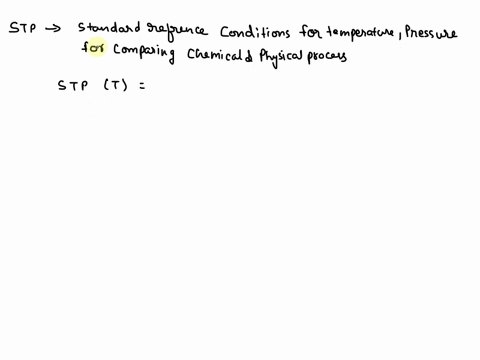 STP → Standard refrence Conditions for temperature, Pressure
for Comparing Chemical & Physical process
STP (T) =